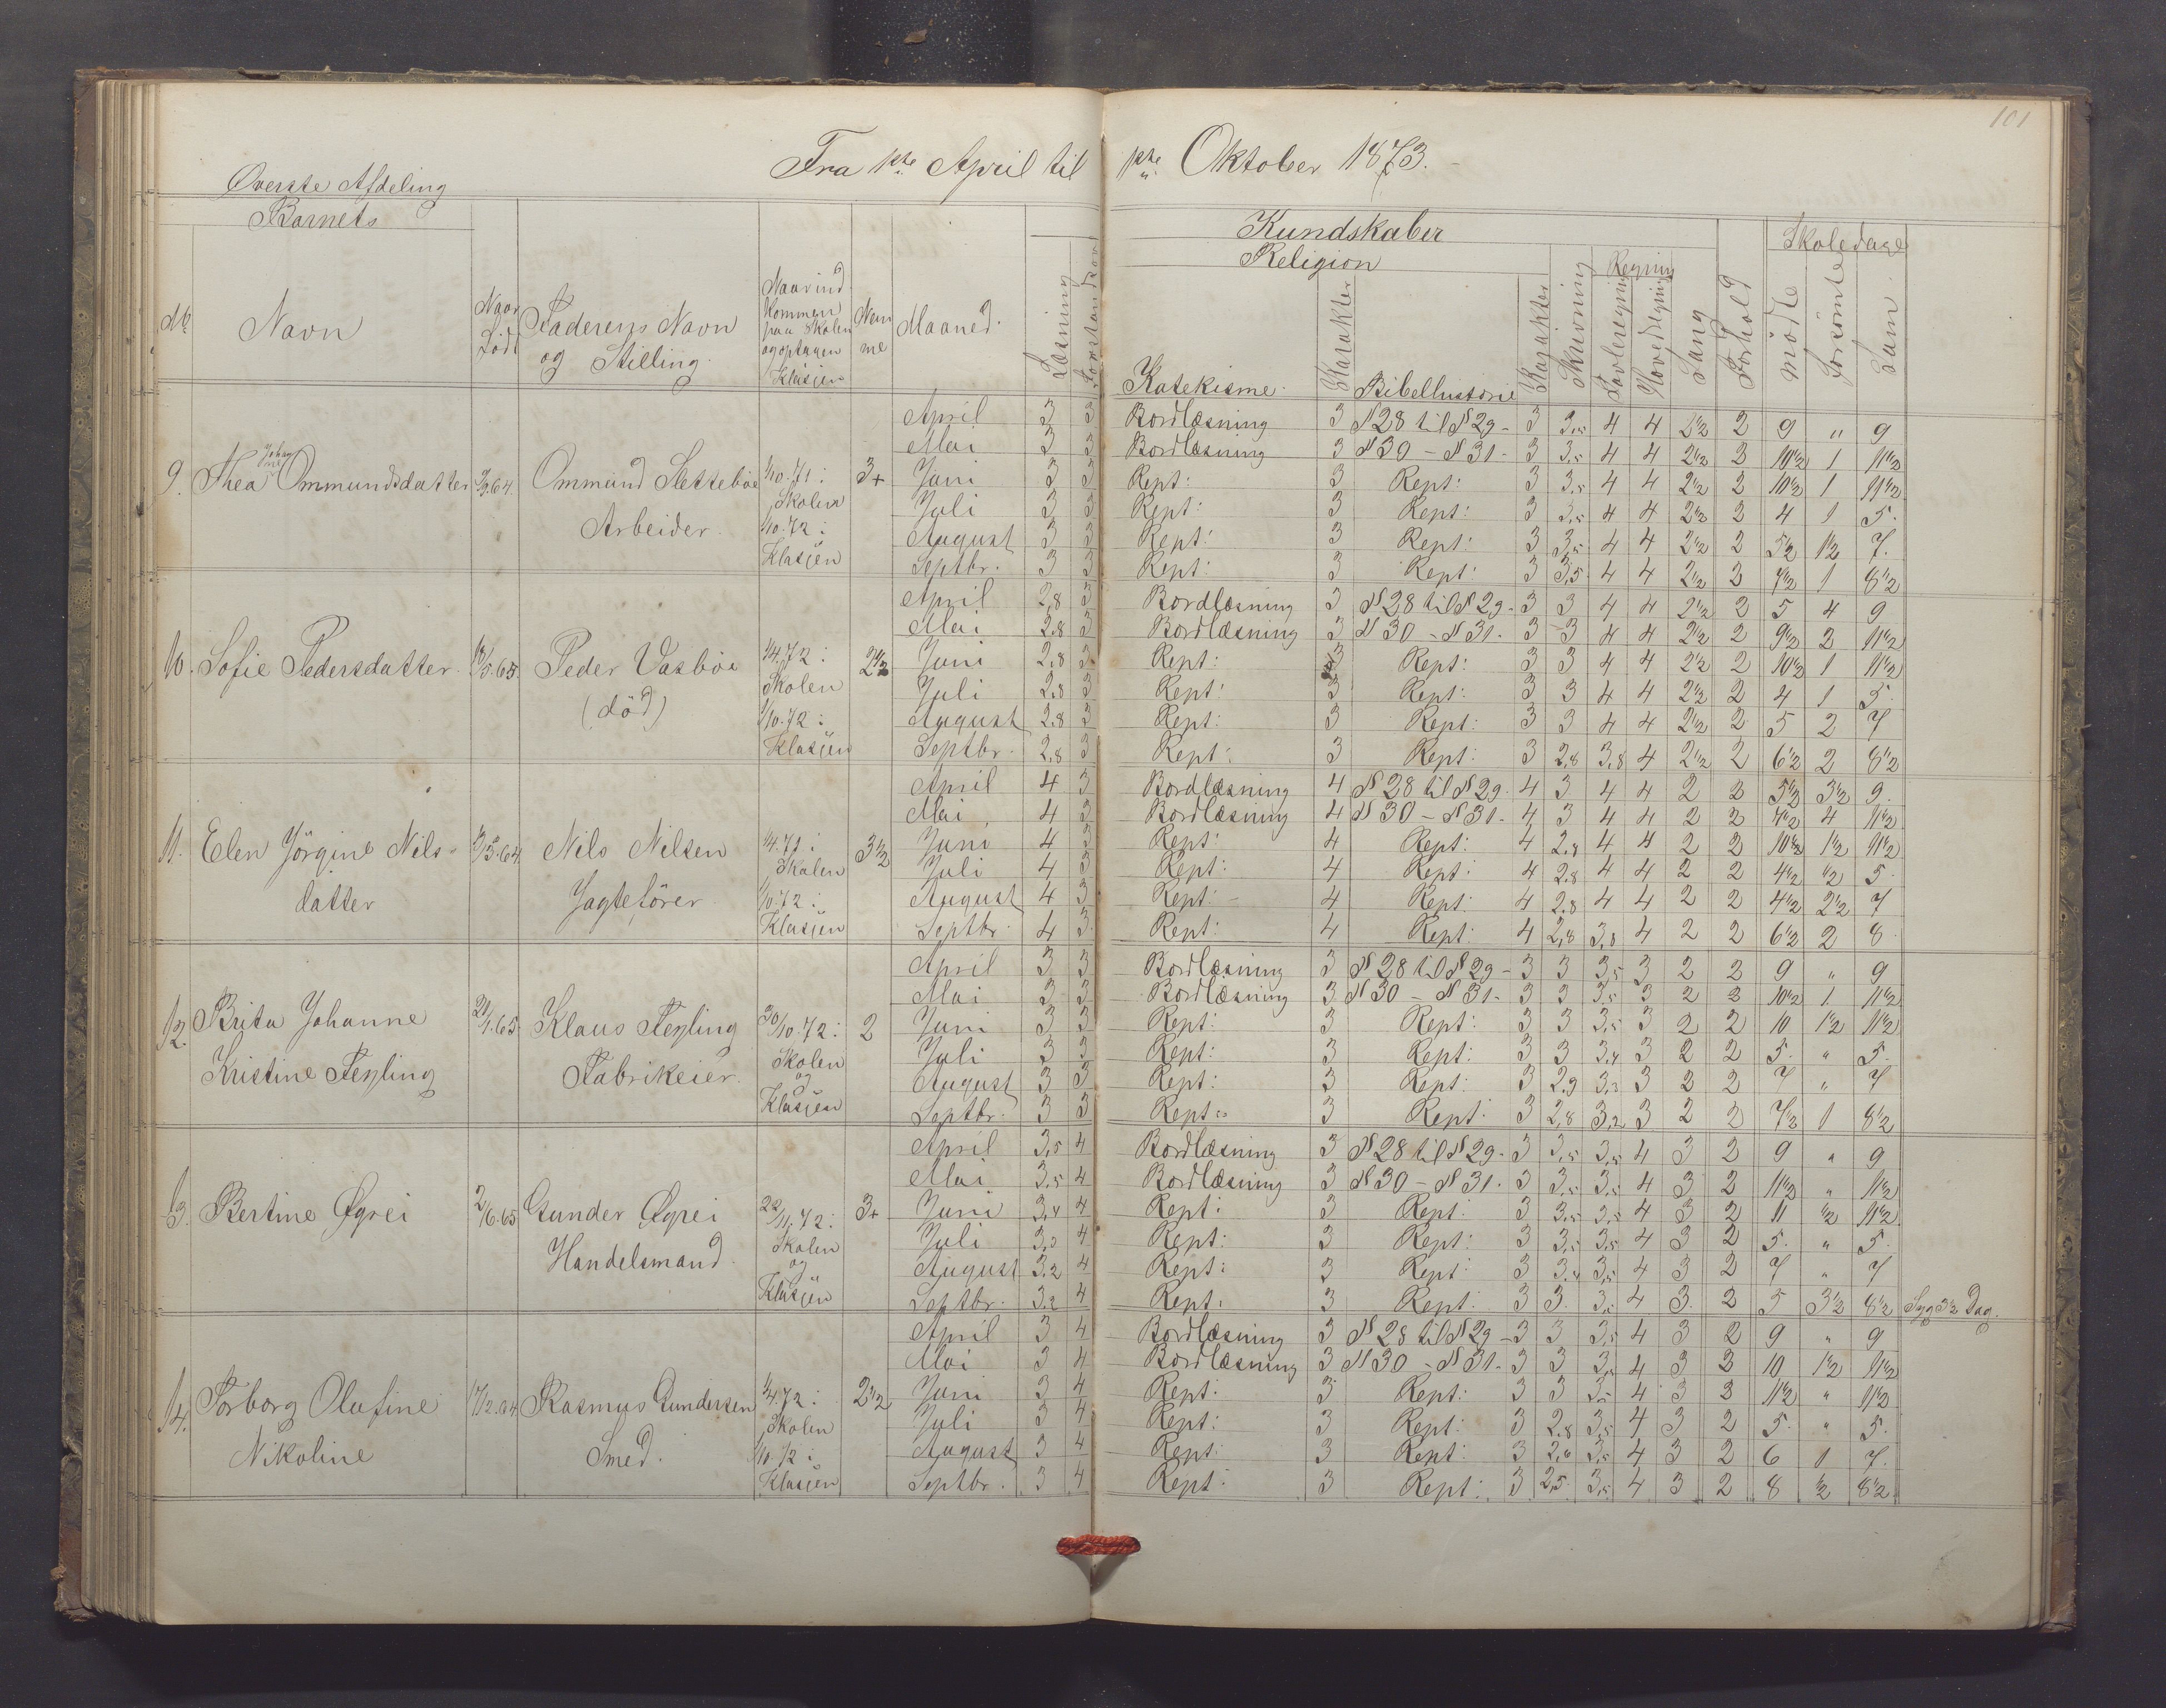 101
Fra 1ste April til 1ste Oktober 1873.
Øverste Afdeling
Barnets
Kundskaber
Skoledage
Religion
Regning
No Navn Naar Född Faderens Navn og Stilling. Naar ind kommen paa Skolen og optagen i Klassen Nemme Maaned. Læsning Katekisme. Karakter Bibelhistorie Karakter Skrivning Tavleregning Hovedregning Sang Forhold mödte forsömte Sum
April 3 3 Bordlæsning 3 § 28 til § 29 - 3 3,5 4 4 2½ 2 9 " 9
Mai 3 3 Bordlæsning 3 § 30 - § 31 - 3 3,5 4 4 2½ 2 10½ 1 11½
9. Thea Johanne Ommundsdatter Ommund Slettebøe 1/10.71 i 3+ Juni 3 3 Rept: 3 Rept: 3 3,5 4 4 2½ 2 10½ 1 11½
Skolen Juli 3 3 Rept: 3 Rept: 3 3,5 4 4 2½ 2 4 1 5.
Arbeider. 1/10.72 i August 3 3 Rept: 3 Rept: 3 3,5 4 4 2½ 2 5½ 1½ 7.
Klassen Septbr. 3 3 Rept: 3 Rept: 3 3,5 4 4 2½ 2 7½ 1 8½
April 2,8 3 Bordlæsning 3 § 28 til § 29 - 3 3 4 4 2½ 2 5 4 9
Mai 2,8 3 Bordlæsning 3 § 30 - § 31. 3 3 4 4 2½ 2 9½ 2 11½
10. Sofie Pedersdatter. Peder Vasbøe 1/4.72 i 2½ Juni 2,8 3 Rept: 3 Rept: 3 3 4 4 2½ 2 10½ 1 11½
Skolen Juli 2,8 3 Rept: 3 Rept: 3 3 4 4 2½ 2 4 1 5.
(död) 1/10.72 i August 2,8 3 Rept: 3 Rept: 3 3 4 4 2½ 2 5 2 7
Klassen Septbr. 2,8 3 Rept: 3 Rept: 3 2,8 3,8 4 2½ 2 6½ 2 8½
April 4 3 Bordlæsning 4 § 28 til § 29. 4 3 4 4 2 2 5½ 3½ 9.
Mai 4 3 Bordlæsning 4 § 30 - § 31. 4 3 4 4 2 2 7½ 4 11½
11. Elen Jörgine Nils- Nils Nilsen 1/4.71 i 3½ Juni 4 3 Rept: 4 Rept: 4 2,8 4 4 2 2 10½ 1½ 11½
Skolen Juli 4 3 Rept: 4 Rept: 4 2,8 4 4 2 2 4½ ½ 5.
datter Jagtefører 1/10.72 i August 4 3 Rept: 4 Rept: 4 2,8 4 4 2 2 4½ 2½ 7
Klassen Septbr. 4 3 Rept: 4 Rept: 4 2,8 3,8 4 2 2 6½ 2 8
April 3 3 Bordlæsning 3 § 28 til § 29 - 3 3 3,5 3 2 2 9 " 9
Mai 3 3 Bordlæsning 3 § 30 - § 31. 3 3 3,5 3 2 2 10½ 1 11½
12. Brita Johanne 21/1.65 Klaus Feyling 30/10.72 i 2 Juni 3 3 Rept: 3 Rept: 3 3 3,5 3 2 2 10 1½ 11½
Skolen Juli 3 3 Rept: 3 Rept: 3 3 3,4 3 2 2 5. " 5.
Kristine Feyling Fabrikeier. og August 3 3 Rept: 3 Rept: 3 2,9 3,3 3 2 2 7 " 7
Klassen Septbr. 3 3 Rept: 3 Rept: 3 2,8 3,2 3 2 2 7½ 1 8½
April 3,5 4 Bordlæsning 3 § 28 til § 29. 3 3,5 3,5 4 3 2 9 " 9
Mai 3,5 4 Bordlæsning 3 § 30 - § 31. 3 3,5 3,5 4 3 2 11½ " 11½
13. Bertine Øgrei 2/6.65 Gunder Øgrei 22/11.72 i 3+ Juni 3,4 4 Rept: 3 Rept: 3 3,5 3,5 4 3 2 11 ½ 11½
Skolen Juli 3,3 4 Rept: 3 Rept: 3 3,5 3,5 4 3 2 5. " 5.
Handelsmand og August 3,2 4 Rept: 3 Rept: 3 3,4 3,5 4 3 2 7 " 7
Klassen Septbr. 3,2 4 Rept: 3 Rept: 3 3. 3,5 4 3. 2 5 3½ 8½ Syg 3½ Dag.
April 3 4 Bordlæsning 3 § 28 til § 29 - 3 3 3,5 4 3 2 9 " 9
Mai 3 4 Bordlæsning 3 § 30 - § 31. 3 3 3,5 4 3 2 10 1½ 11½
14. Torborg Olufine Rasmus Gundersen 1/4.72 i 2½ Juni 3 4 Rept: 3 Rept: 3 3 3,5 4 3 2 11½ " 11½
Skolen Juli 3 4 Rept: 3 Rept: 3 2,8 3,5 4 3 2 5. " 5.
Nikoline Smed. 1/10.72 i August 3 4 Rept: 3 Rept: 3 2,6 3,5 4 3 2 6 1 7.
Klassen Septbr. 3 4 Rept: 3 Rept: 3 2,5 3,5 4 3 2 8 ½ 8½